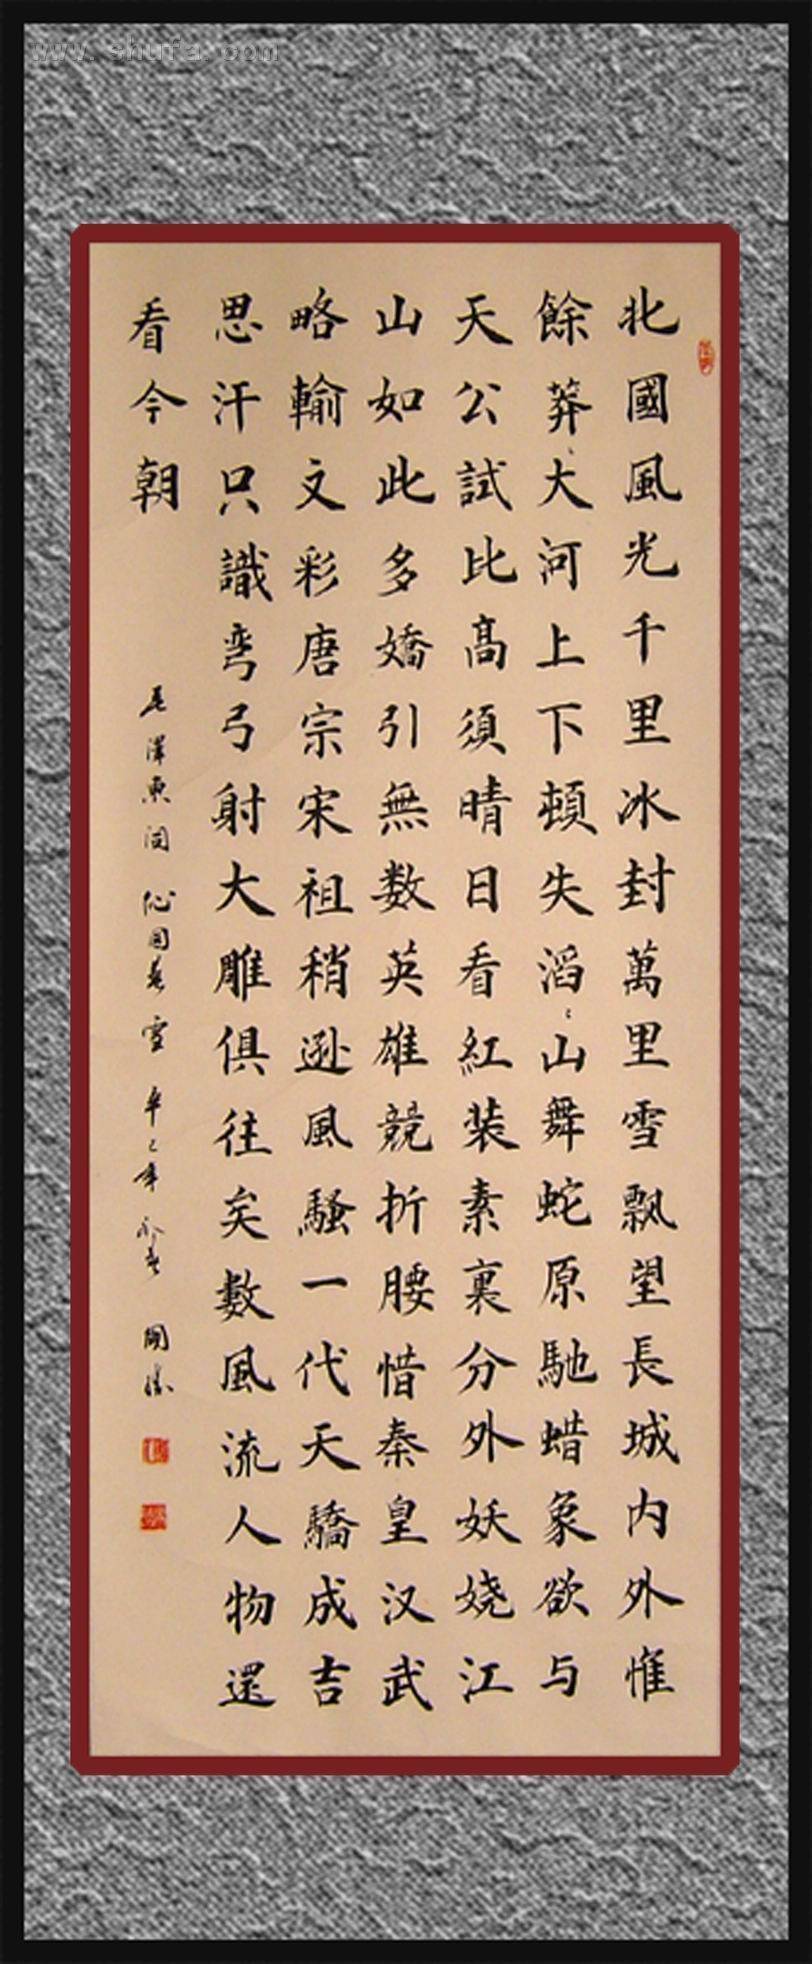 www.shufa.com
北國風光千里冰封萬里雪飄望長城内外惟
餘莽、大河上下頓失滔、山舞蛇原馳蜡象欲与
天公試比髙須晴日看紅装素裹分外妖娆江
山如此多嬌引無数英雄競折腰惜秦皇汉武
略輸文彩唐宗宋祖稍遜風騷一代天驕成吉
思汗只識弯弓射大雕俱往矣數風流人物還
看今朝
毛澤東詞沁园春雪 辛巳年